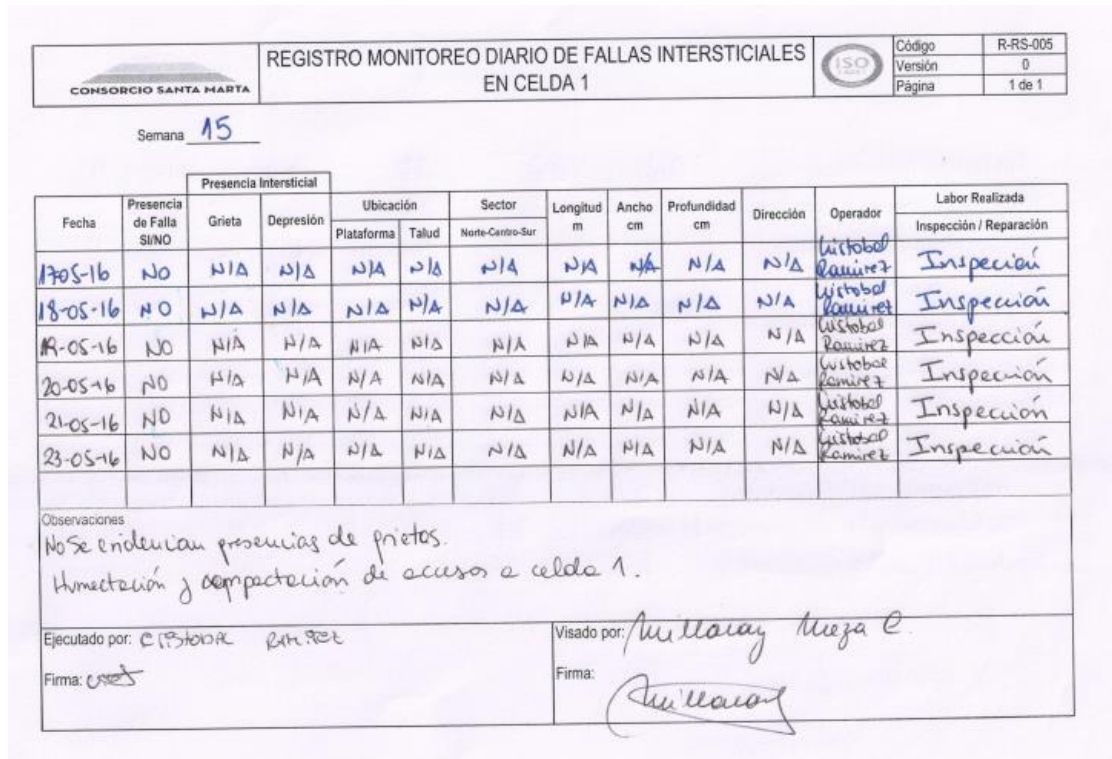 CONSORCIO SANTA MARTA
REGISTRO MONITOREO DIARIO DE FALLAS INTERSTICIALES
EN CELDA 1
ISO
Código R-RS-005
Versión 0
Página 1 de 1
Semana 15
Presencia Intersticial
Fecha Presencia de Falla SI/NO Grieta Depresión Ubicación Plataforma Talud Sector Norte-Centro-Sur Longitud m Ancho cm Profundidad cm Dirección Operador Labor Realizada Inspección / Reparación
1705-16 NO N/A N/A N/A N/A N/A N/A N/A N/A N/A Cristobal Ramirez Inspección
18-05-16 NO N/A N/A N/A N/A N/A N/A N/A N/A N/A Cristobal Ramirez Inspección
19-05-16 NO N/A N/A N/A N/A N/A N/A N/A N/A N/A Cristobal Ramirez Inspección
20-05-16 NO N/A N/A N/A N/A N/A N/A N/A N/A N/A Cristobal Ramirez Inspección
21-05-16 NO N/A N/A N/A N/A N/A N/A N/A N/A N/A Cristobal Ramirez Inspección
23-05-16 NO N/A N/A N/A N/A N/A N/A N/A N/A N/A Cristobal Ramirez Inspección
Observaciones
No se evidencian presencias de grietas.
Humectación y compactación de accesos a celda 1.
Ejecutado por: CRISTOBAL RAMIREZ
Visado por: Millaray Meza C.
Firma:
Firma: Millaray